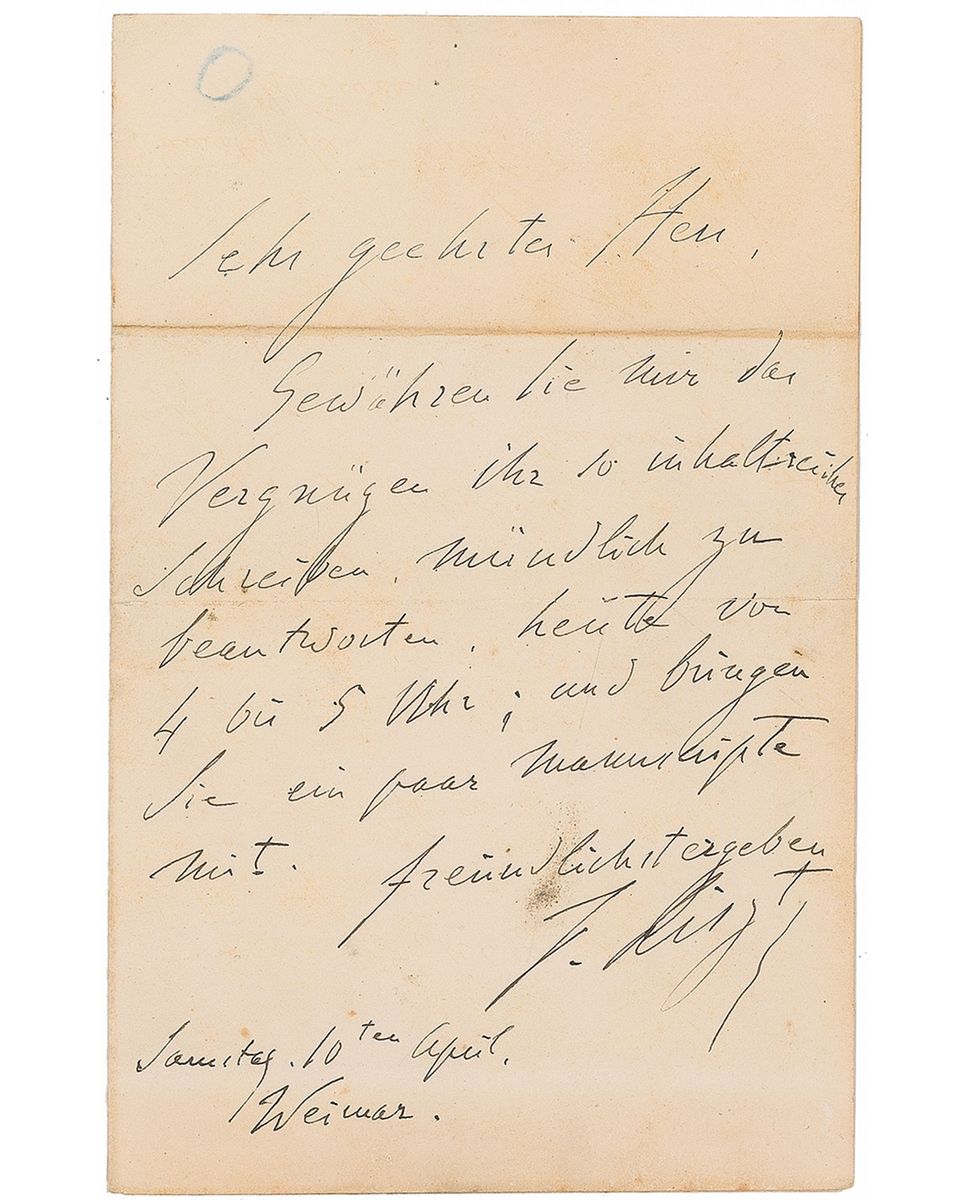 Sehr geehrter Herr,
Gewähren Sie mir das
Vergnügen ihr so inhaltreiches
Schreiben, mündlich zu
beantworten, heute von
4 bis 5 Uhr; und bringen
Sie ein paar Manuscripte
mit.
freundlichst ergeben
F. Liszt
Samstag. 10ten April.
Weimar.